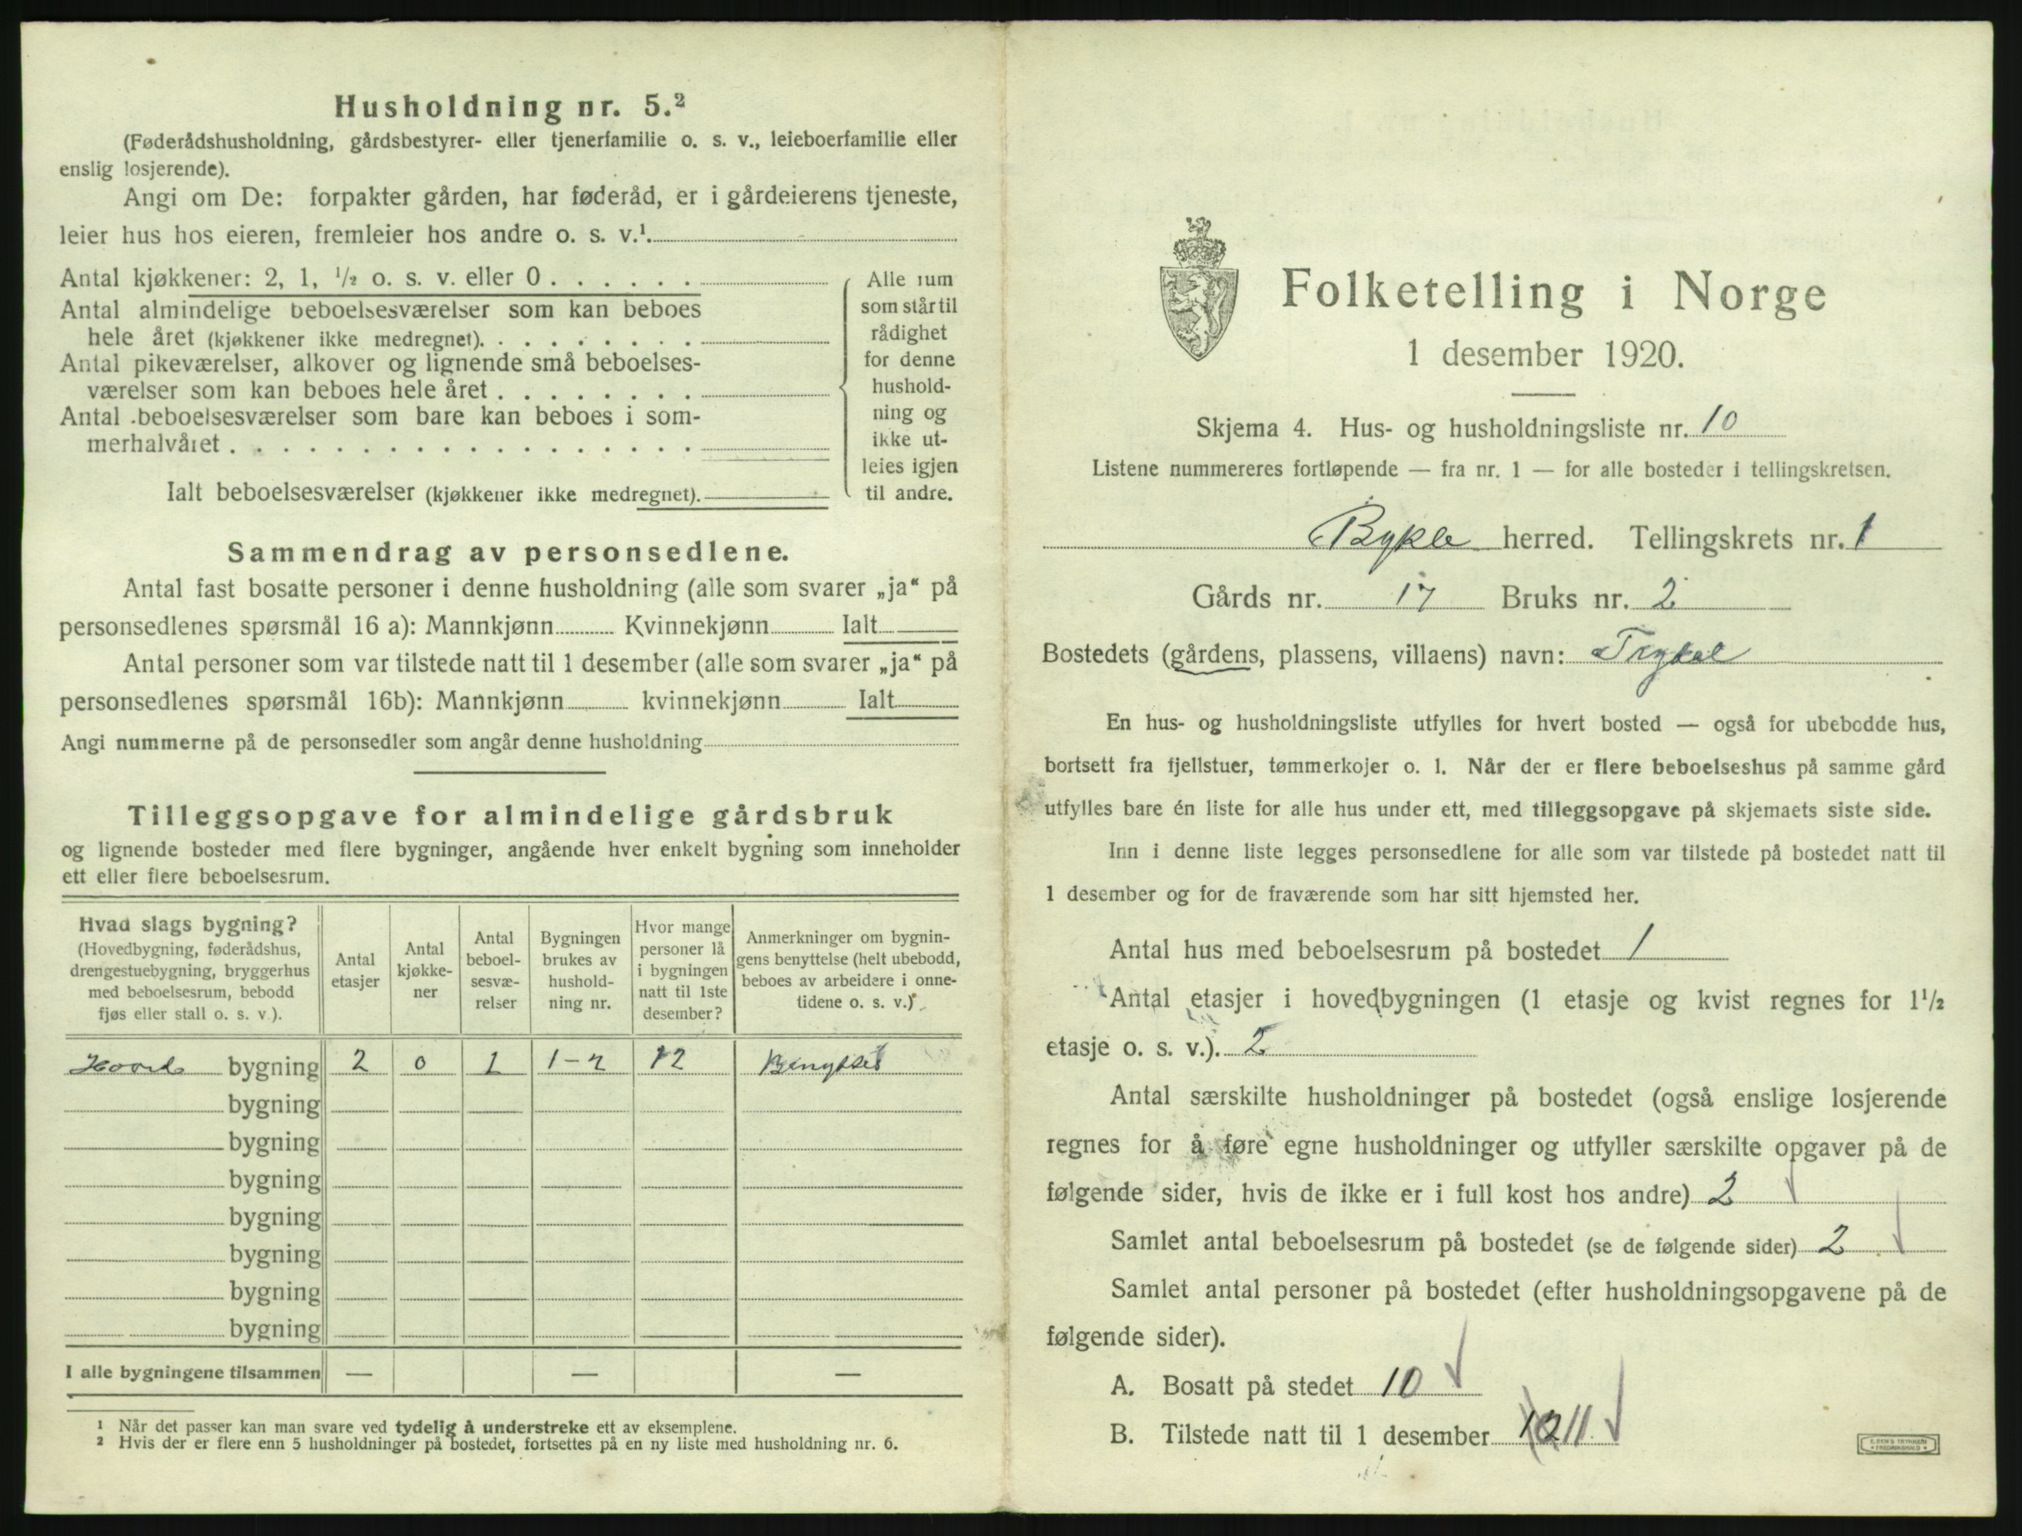 Husholdning nr. 5.²
(Føderådshusholdning, gårdsbestyrer- eller tjenerfamilie o. s. v., leieboerfamilie eller
enslig losjerende).
Angi om De: forpakter gården, har føderåd, er i gårdeierens tjeneste,
leier hus hos eieren, fremleier hos andre o. s. v.¹
Antal kjøkkener: 2, 1, ½ o. s. v. eller 0
Antal almindelige beboelsesværelser som kan beboes
hele året (kjøkkener ikke medregnet).
Antal pikeværelser, alkover og lignende små beboelses-
værelser som kan beboes hele året
Antal beboelsesværelser som bare kan beboes i som-
merhalvåret
Ialt beboelsesværelser (kjøkkener ikke medregnet).
Alle rum
som står til
rådighet
for denne
hushold-
ning og
ikke ut-
leies igjen
til andre.
Sammendrag av personsedlene.
Antal fast bosatte personer i denne husholdning (alle som svarer „ja“ på
personsedlenes spørsmål 16 a): Mannkjønn Kvinnekjønn Ialt
Antal personer som var tilstede natt til 1 desember (alle som svarer „ja“ på
personsedlenes spørsmål 16b): Mannkjønn kvinnekjønn Ialt
Angi nummerne på de personsedler som angår denne husholdning
Tilleggsopgave for almindelige gårdsbruk
og lignende bosteder med flere bygninger, angående hver enkelt bygning som inneholder
ett eller flere beboelsesrum.
Hvad slags bygning?
(Hovedbygning, føderådshus,
drengestuebygning, bryggerhus
med beboelsesrum, bebodd
fjøs eller stall o. s. v.).
Antal
etasjer
Antal
kjøkke-
ner
Antal
beboel-
sesvæ-
relser
Bygningen
brukes av
hushold-
ning nr.
Hvor mange
personer lå
i bygningen
natt til 1ste
desember?
Anmerkninger om bygnin-
gens benyttelse (helt ubebodd,
beboes av arbeidere i onne-
tidene o. s. v.).
bygning 2 0 1 1-2 12
bygning
bygning
bygning
bygning
bygning
bygning
bygning
I alle bygningene tilsammen — — —
¹ Når det passer kan man svare ved tydelig å understreke ett av eksemplene.
² Hvis der er flere enn 5 husholdninger på bostedet, fortsettes på en ny liste med husholdning nr. 6.
Folketelling i Norge
1 desember 1920.
Skjema 4. Hus- og husholdningsliste nr. 10
Listene nummereres fortløpende — fra nr. 1 — for alle bosteder i tellingskretsen.
Bykle herred. Tellingskrets nr. 1
Gårds nr. 17 Bruks nr. 2
Bostedets (gårdens, plassens, villaens) navn:
En hus- og husholdningsliste utfylles for hvert bosted — også for ubebodde hus,
bortsett fra fjellstuer, tømmerkojer o. l. Når der er flere beboelseshus på samme gård
utfylles bare én liste for alle hus under ett, med tilleggsopgave på skjemaets siste side.
Inn i denne liste legges personsedlene for alle som var tilstede på bostedet natt til
1 desember og for de fraværende som har sitt hjemsted her.
Antal hus med beboelsesrum på bostedet 1
Antal etasjer i hovedbygningen (1 etasje og kvist regnes for 1½
etasje o. s. v.). 2
Antal særskilte husholdninger på bostedet (også enslige losjerende
regnes for å føre egne husholdninger og utfyller særskilte opgaver på de
følgende sider, hvis de ikke er i full kost hos andre) 2
Samlet antal beboelsesrum på bostedet (se de følgende sider) 2
Samlet antal personer på bostedet (efter husholdningsopgavene på de
følgende sider).
A. Bosatt på stedet 10
B. Tilstede natt til 1 desember 11